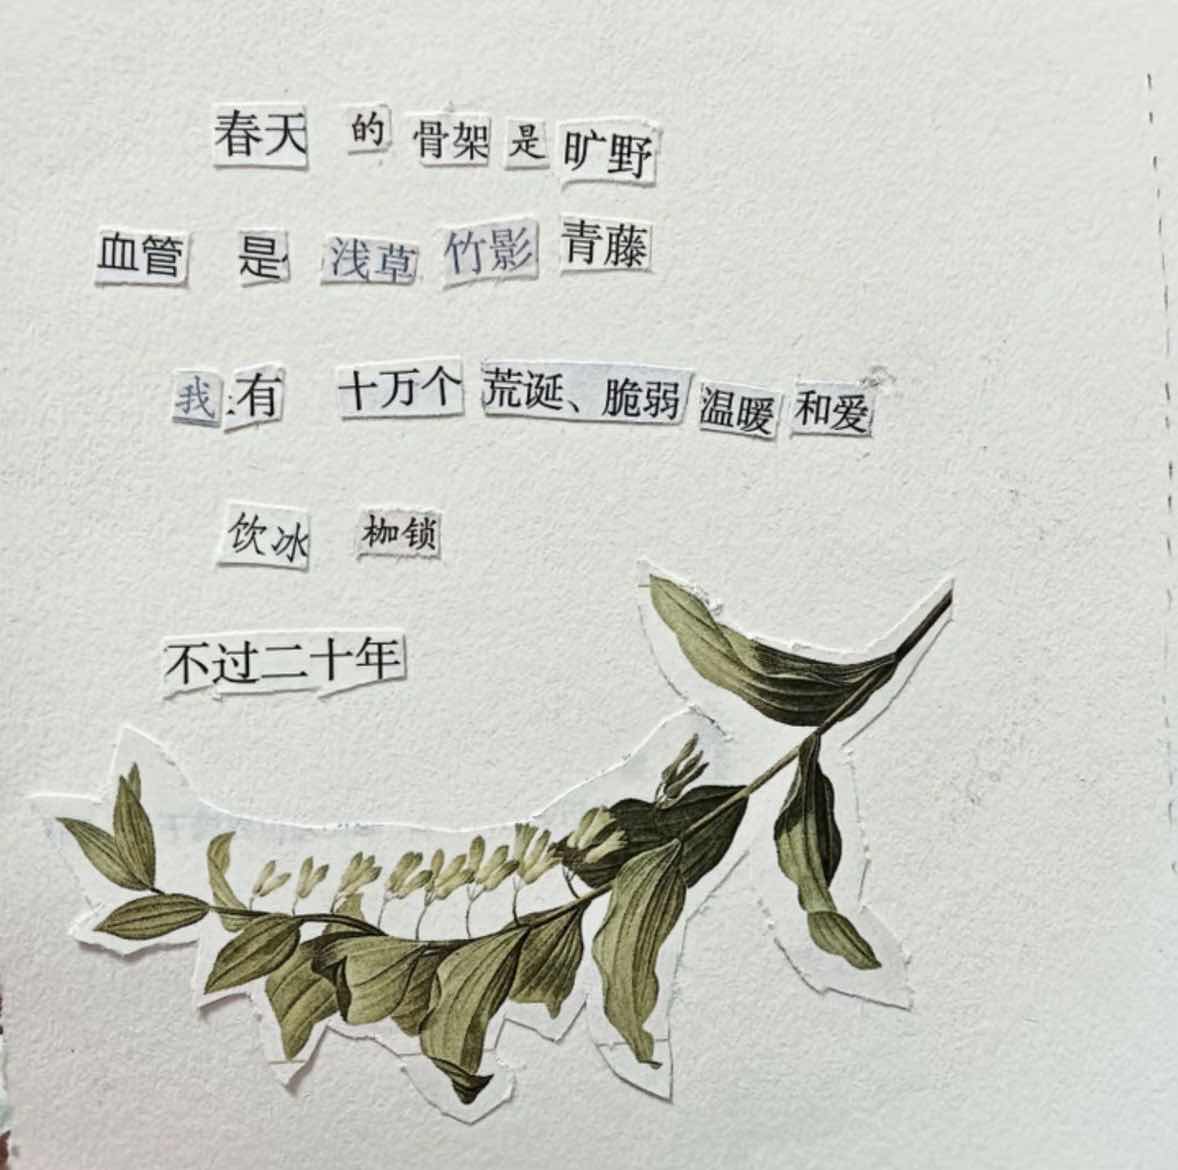 春天 的 骨架 是 旷野
血管 是 浅草 竹影 青藤
我 有 十万个 荒诞、脆弱 温暖 和爱
饮冰 枷锁
不过二十年